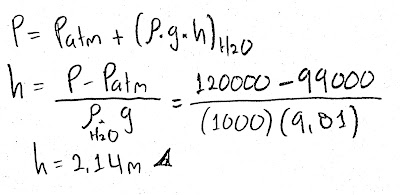 P = Patm + (ρ.g.h)H2O
h = P - Patm / ρH2O g = 120000 - 99000 / (1000) (9,81)
h = 2,14 m